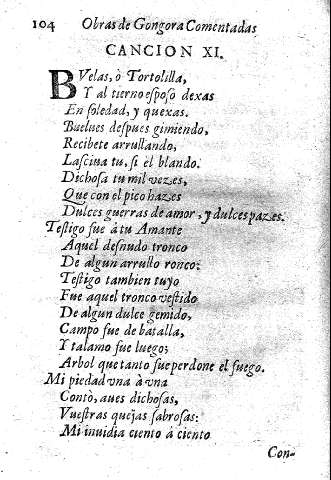 104 Obras de Gongora Comentadas
CANCION XI.
BVelas, ò Tortolilla,
Y al tierno esposo dexas
En soledad, y quexas.
Buelues despues gimiendo,
Recibete arrullando,
Lasciua tu, si el blando.
Dichosa tu mil vezes,
Que con el pico hazes
Dulces guerras de amor, y dulces pazes.
Testigo fue à tu Amante
Aquel desnudo tronco
De algun arrullo ronco:
Testigo tambien tuyo
Fue aquel tronco vestido
De algun dulce gemido,
Campo fue de batalla,
Y talamo fue luego;
Arbol que tanto fue perdone el fuego.
Mi piedad vna à vna
Contò, aues dichosas,
Vuestras quejas sabrosas:
Mi inuidia ciento à ciento
Con-